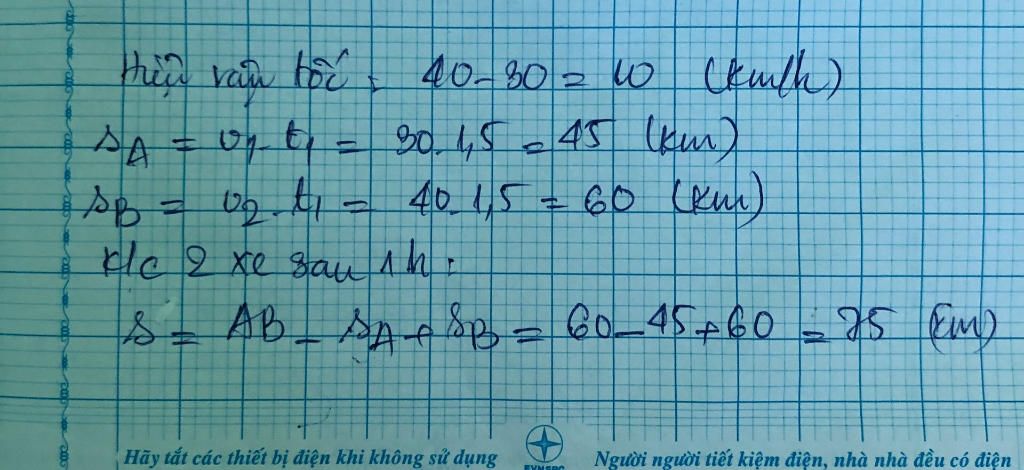 Hiệu vận tốc : 40 - 30 = 10 (km/h)
sA = v1. t1 = 30. 1,5 = 45 (km)
sB = v2. t1 = 40. 1,5 = 60 (km)
k/c 2 xe sau 1h :
s = AB - sA + sB = 60 - 45 + 60 = 75 (km)
Hãy tắt các thiết bị điện khi không sử dụng EVNSPC Người người tiết kiệm điện, nhà nhà đều có điện